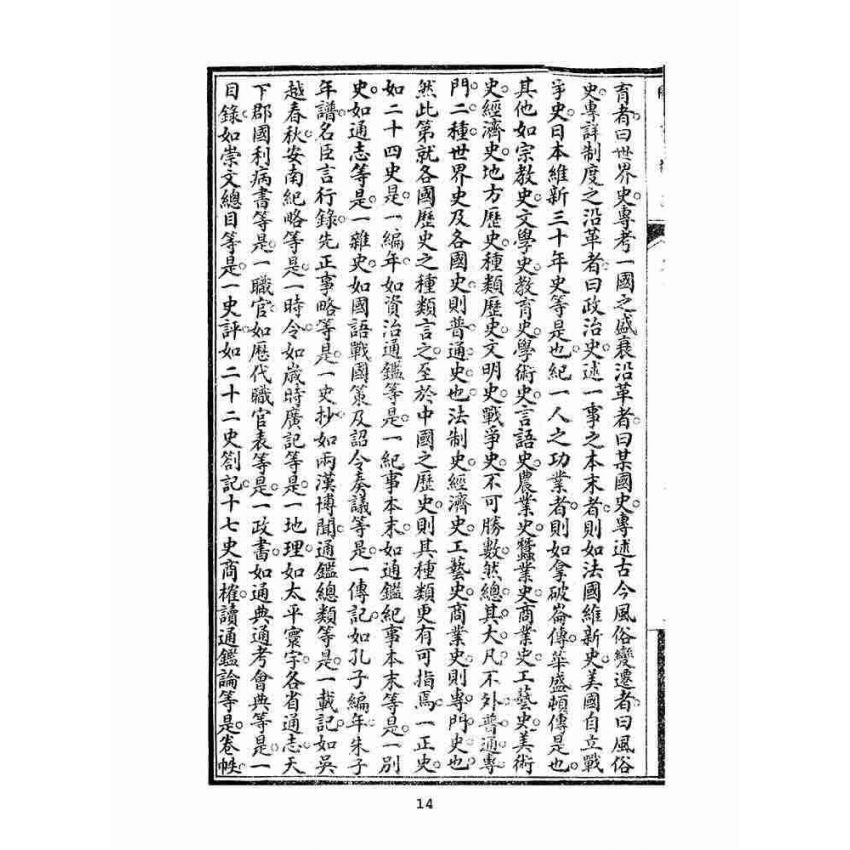 育者曰世界史專考一國之盛衰沿革者曰某國史專述古今風俗變遷者曰風俗
史專詳制度之沿革者曰政治史述一事之本末者則如法國維新史美國自立戰
爭史日本維新三十年史等是也紀一人之功業者則如拿破崙傳華盛頓傳是也
其他如宗教史文學史教育史學術史言語史農業史蠶業史商業史工藝史美術
史經濟史地方歷史種類歷史文明史戰爭史不可勝數然總其大凡不外普通專
門二種世界史及各國史則普通史也法制史經濟史工藝史商業史則專門史也
然此第就各國歷史之種類言之至於中國之歷史則其種類更有可指焉一正史
如二十四史是一編年如資治通鑑等是一紀事本末如通鑑紀事本末等是一別
史如通志等是一雜史如國語戰國策及詔令奏議等是一傳記如孔子編年朱子
年譜名臣言行錄先正事略等是一史抄如兩漢博聞通鑑總類等是一載記如吳
越春秋安南紀略等是一時令如歲時廣記等是一地理如太平寰宇各省通志天
下郡國利病書等是一職官如歷代職官表等是一政書如通典通考會典等是一
目錄如崇文總目等是一史評如二十二史劄記十七史商榷讀通鑑論等是卷帙
14